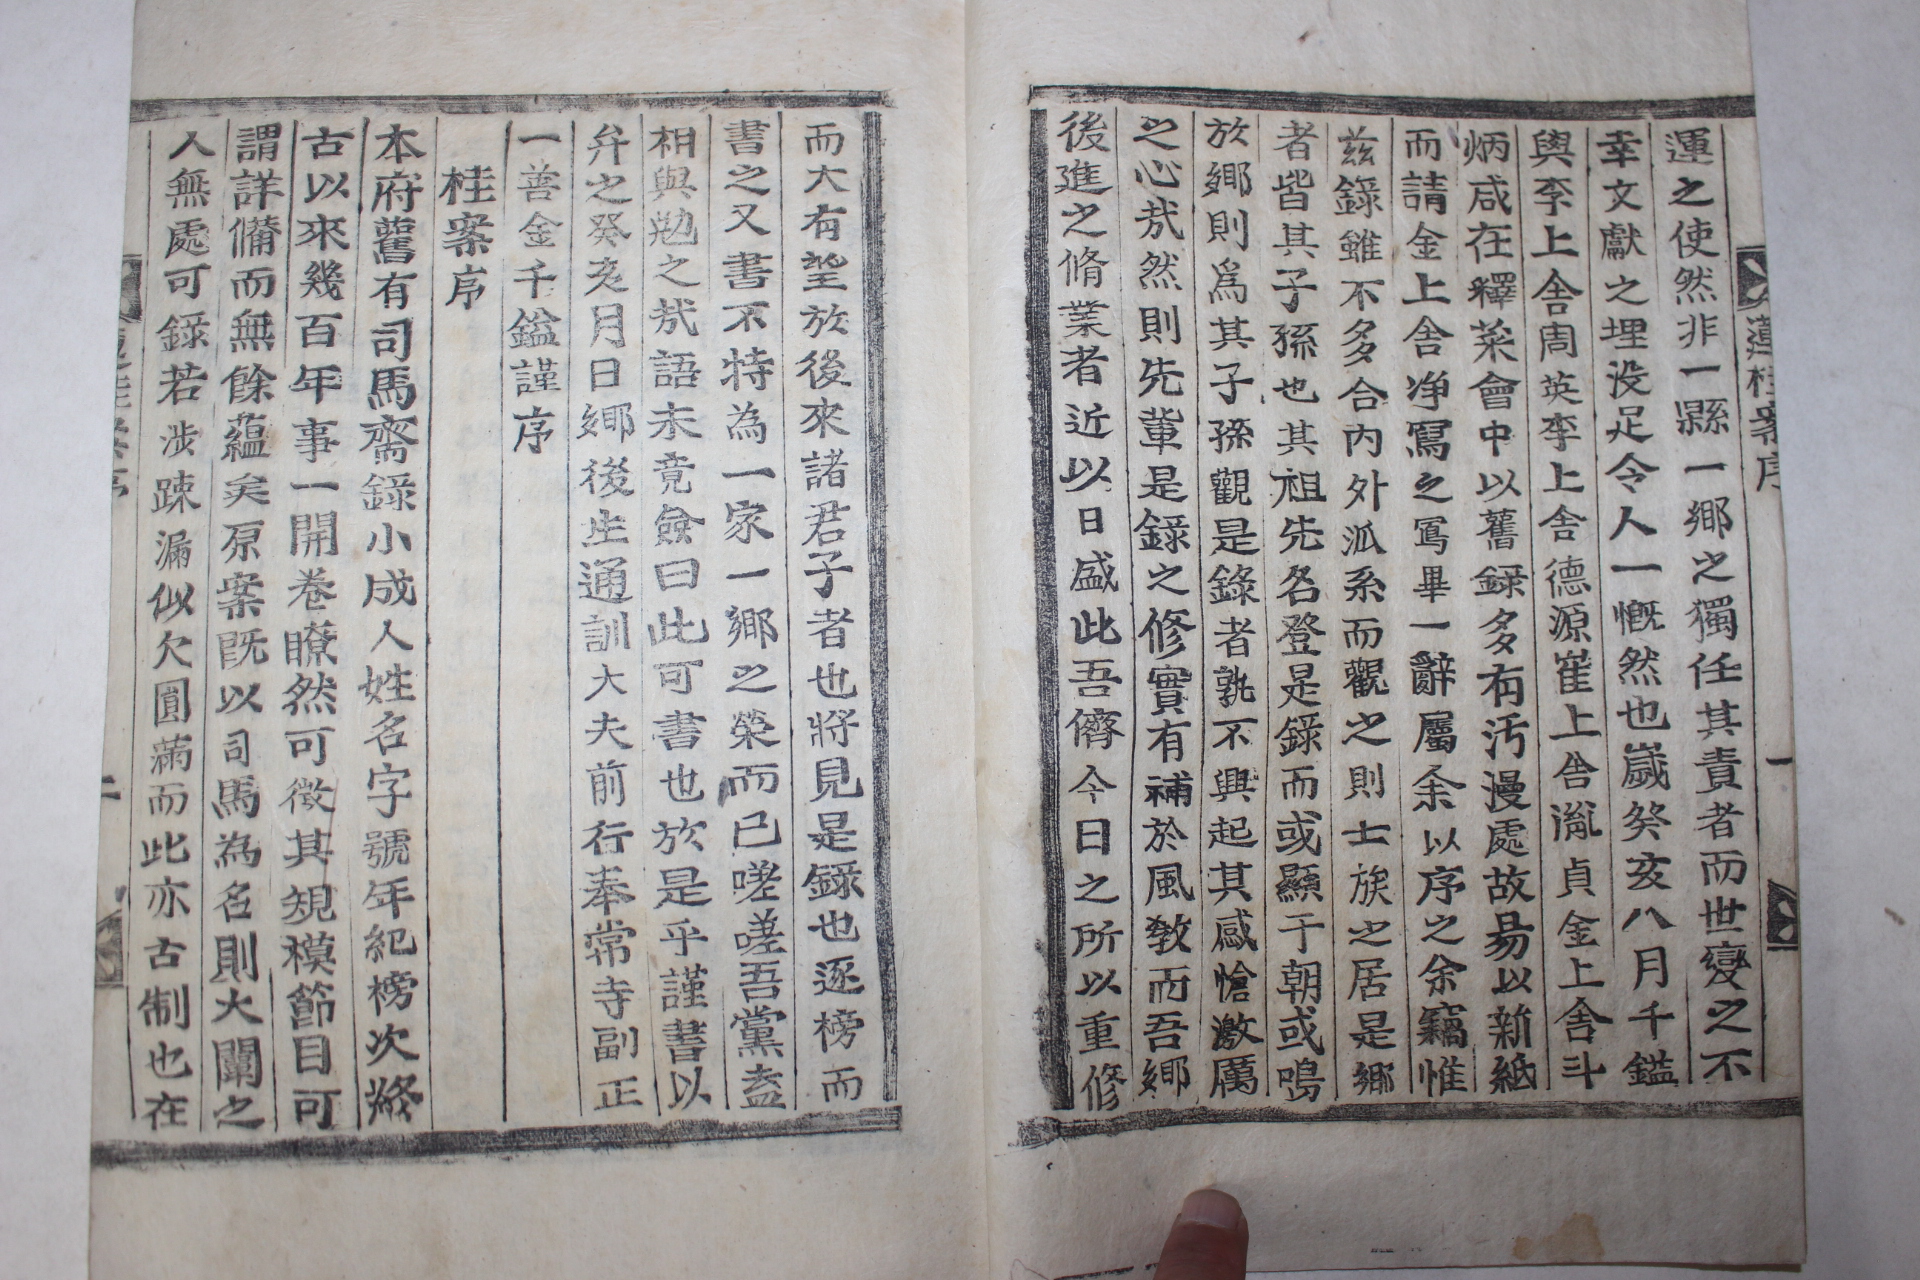 蓮桂案序
一
運之使然非一縣一鄕之獨任其責者而世變之不
幸文獻之埋没足令人一慨然也嵗癸亥八月千鎰
與李上舍周英李上舍德源崔上舍胤貞金上舍斗
炳咸在釋菜會中以舊録多有汚漫處故昜以新紙
而請金上舍净寫之寫畢一辭屬余以序之余竊惟
兹錄雖不多合内外泒系而觀之則士族之居是鄕
者皆其子孫也其祖先名登是錄而或顯于朝或鳴
於鄕則爲其子孫觀是錄者孰不興起其感愴激厲
之心㢤然則先軰是錄之修實有補於風敎而吾鄕
後進之脩業者近以日盛此吾儕今日之所以重修
而大有望於後來諸君子者也將見是錄也逐榜而
書之又書不特為一家一鄕之榮而已嗟嗟吾黨盍
相與勉之㢤語未竟僉曰此可書也於是乎謹書以
弁之癸亥月日鄕後生通訓大夫前行奉常寺副正
一善金千鎰謹序
桂案序
本府舊有司馬齋錄小成人姓名字號年紀榜次終
古以來幾百年事一開卷瞭然可徵其規模節目可
謂詳備而無餘蘊矣原案旣以司馬為名則大闡之
人無處可錄若涉踈漏似欠圓滿而此亦古制也在
二